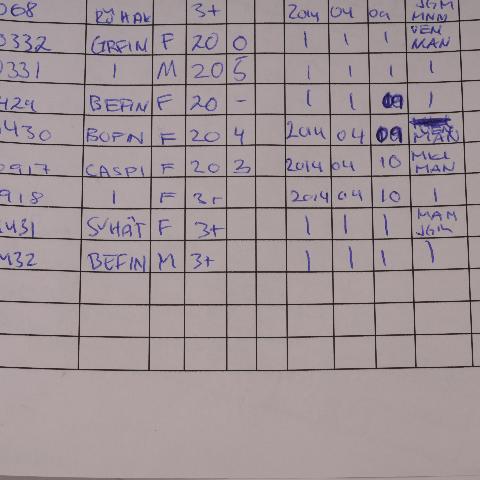 068 RÖHAK 3+ 2014 04 09 JGM MNM
0332 GRFIN F 20 0 1 1 1 VEN MAN
0331 1 M 20 5 1 1 1 1
424 BEFIN F 20 - 1 1 09 1
430 BOFIN F 20 4 2014 04 09 VEN MAN
0917 CASPI F 20 3 2014 04 10 MKL MAN
918 1 F 3+ 2014 04 10 1
431 SVHÄT F 3+ 1 1 1 MAM JGM
432 BEFIN M 3+ 1 1 1 1